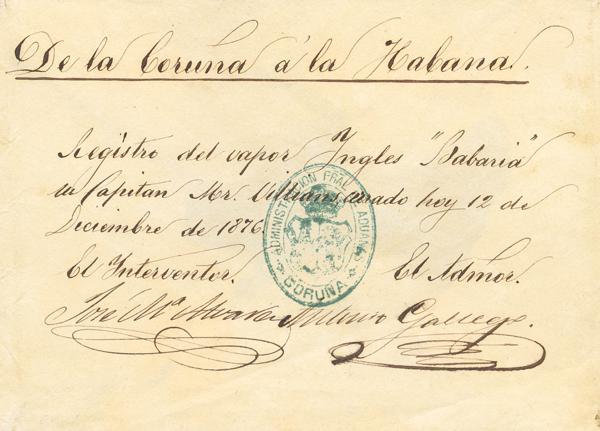 De la Coruña á la Habana.
Registro del vapor Ingles "Babaria"
su Capitan Mr. Williams, cerrado hoy 12 de
Diciembre de 1876.
El Interventor. El Admor.
José Mª Alvarez Gallego.
ADMINISTRACION PRAL ADUANAS
CORUÑA